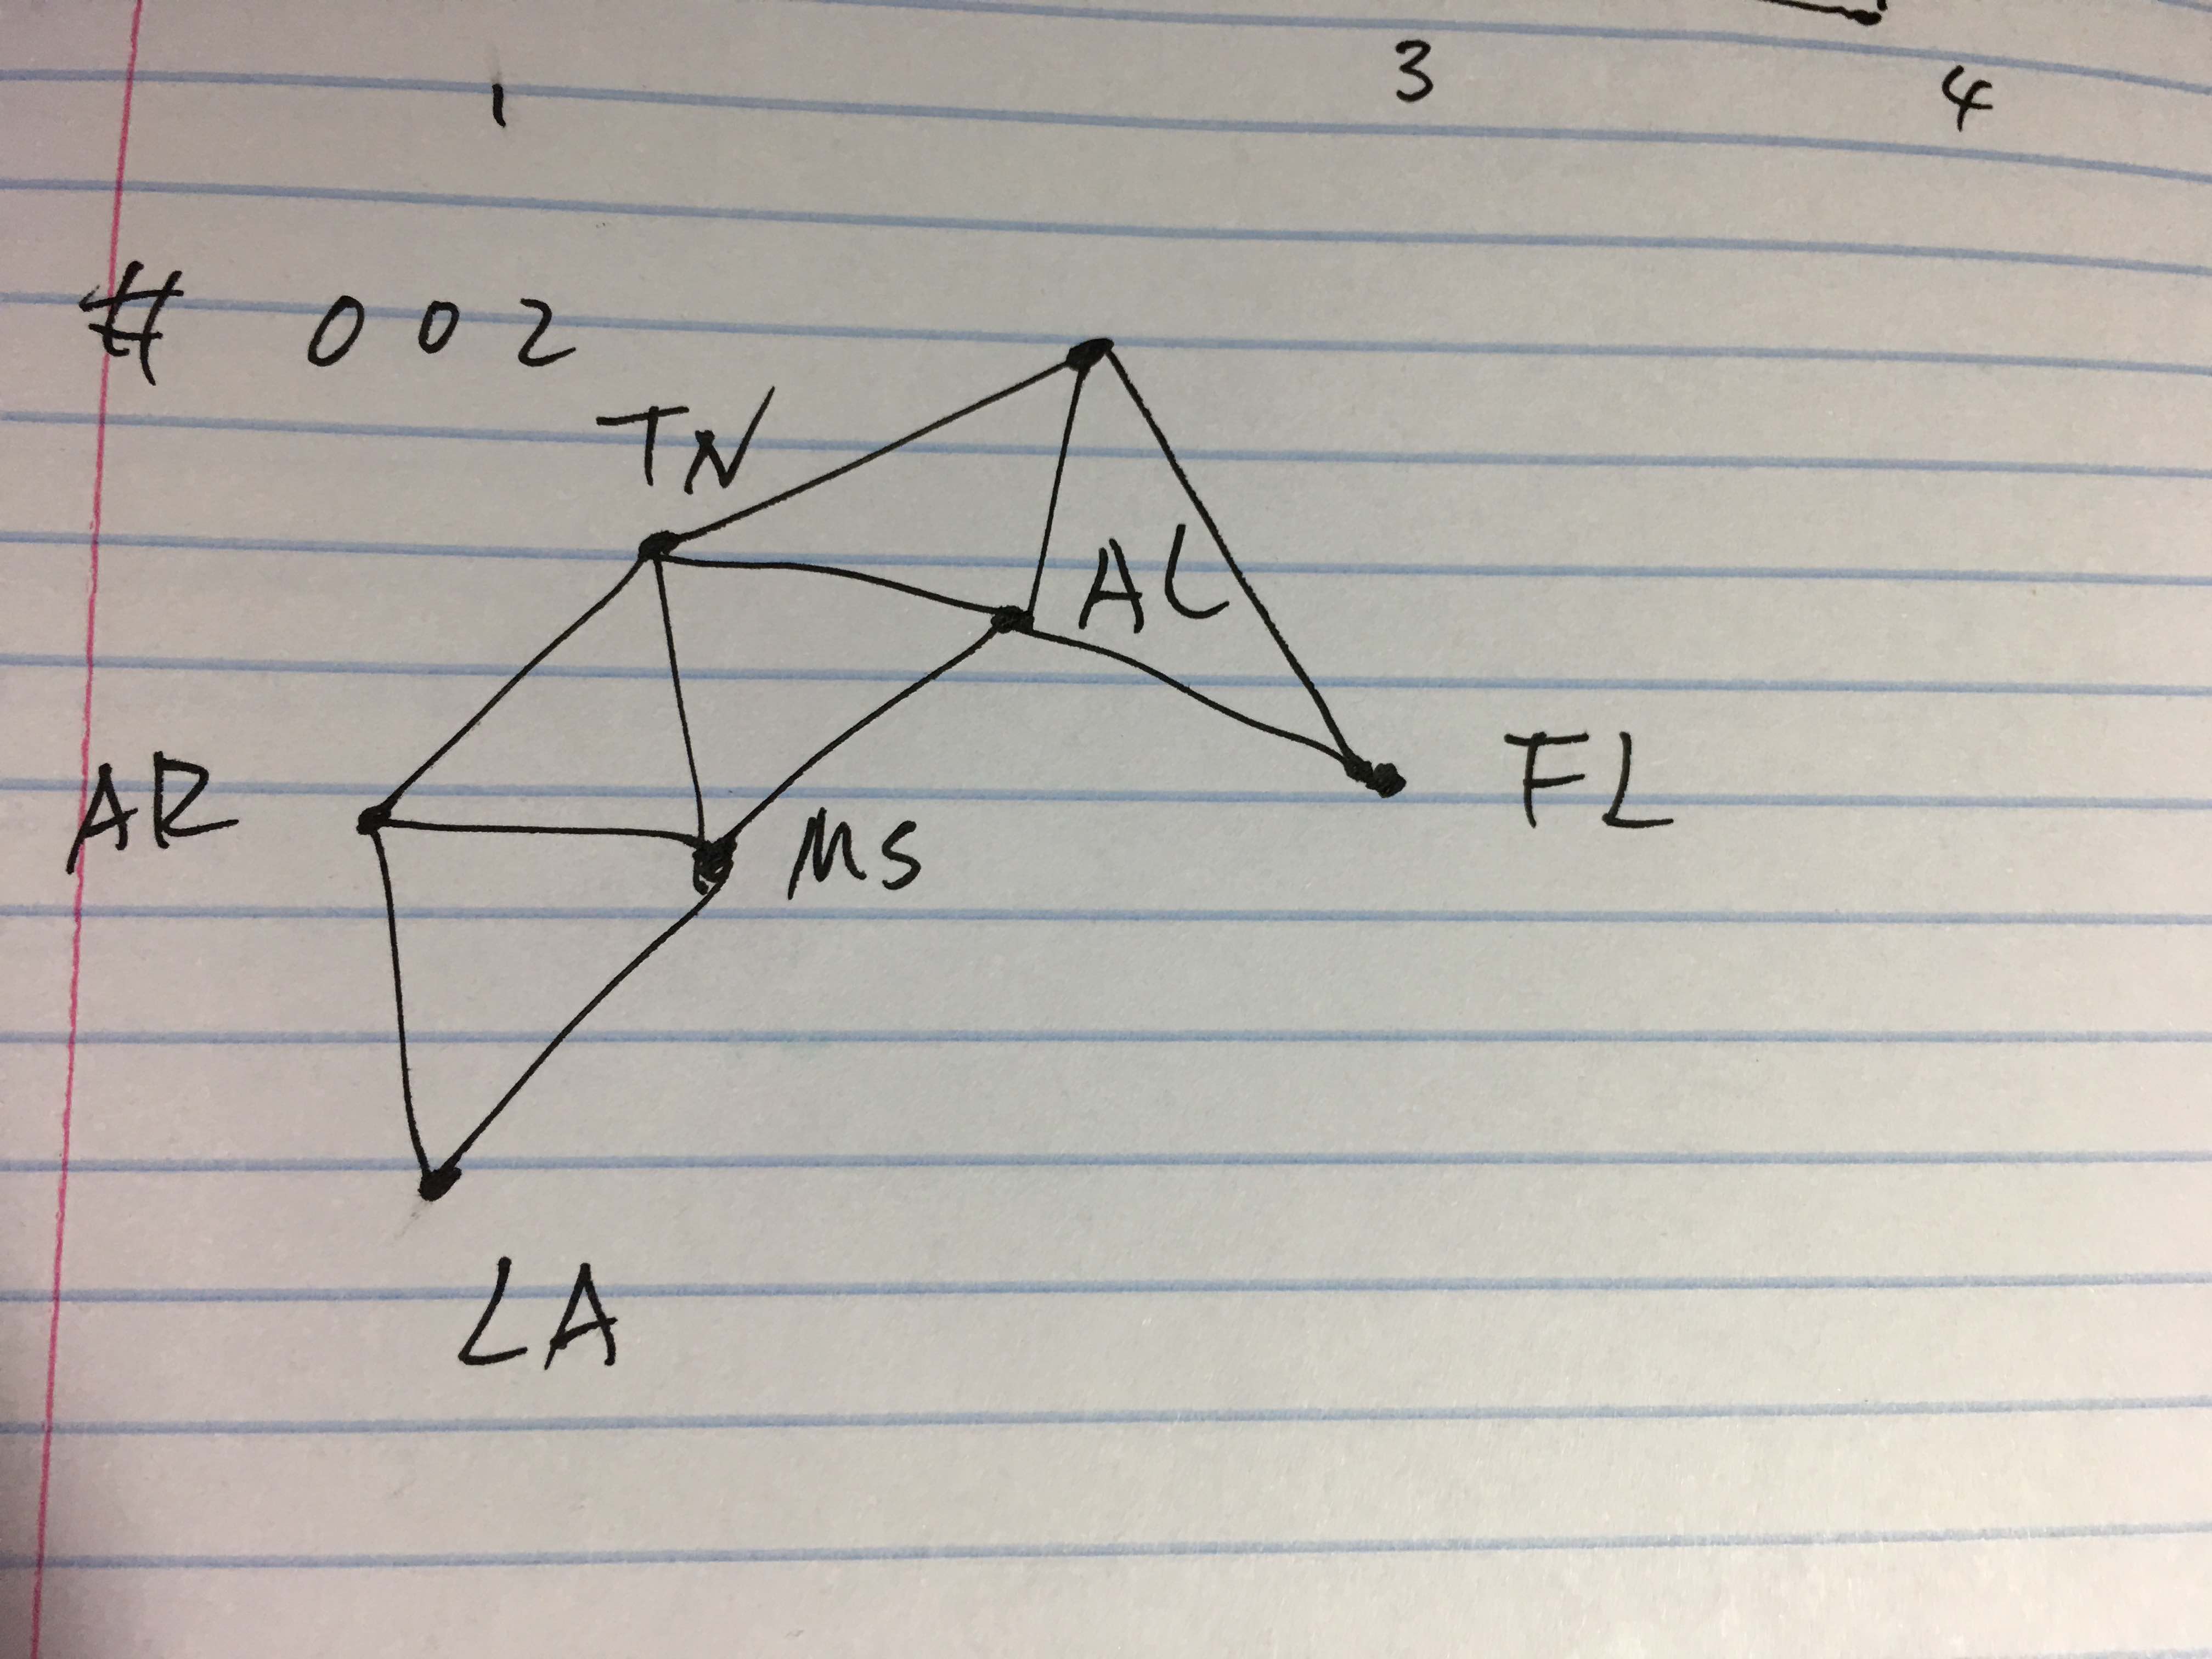 1 3 4
# 002
TN
AL
AR MS FL
LA